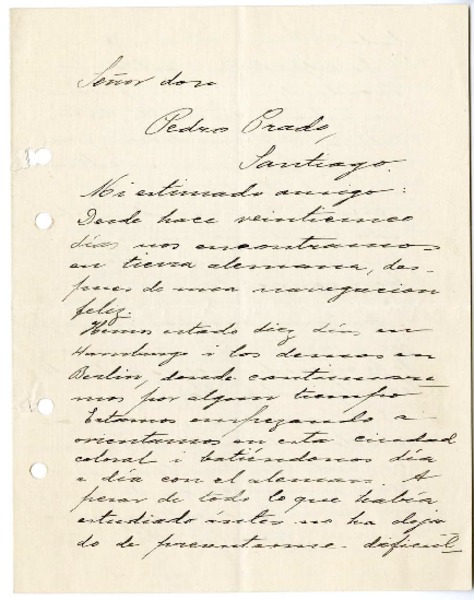 Señor don
Pedro Prado,
Santiago.
Mi estimado amigo:
Desde hace veinticinco
días nos encontramos
en tierra alemana, des-
pues de una navegacion
feliz.
Hemos estado diez dias en
Hamburgo i los demas en
Berlin, donde continuare
mos por algun tiempo
Estamos empezando a
orientarnos en esta ciudad
colosal i batiéndonos día
a día con el aleman. A
pesar de todo lo que había
estudiado ántes no ha deja
do de presentarme dificul